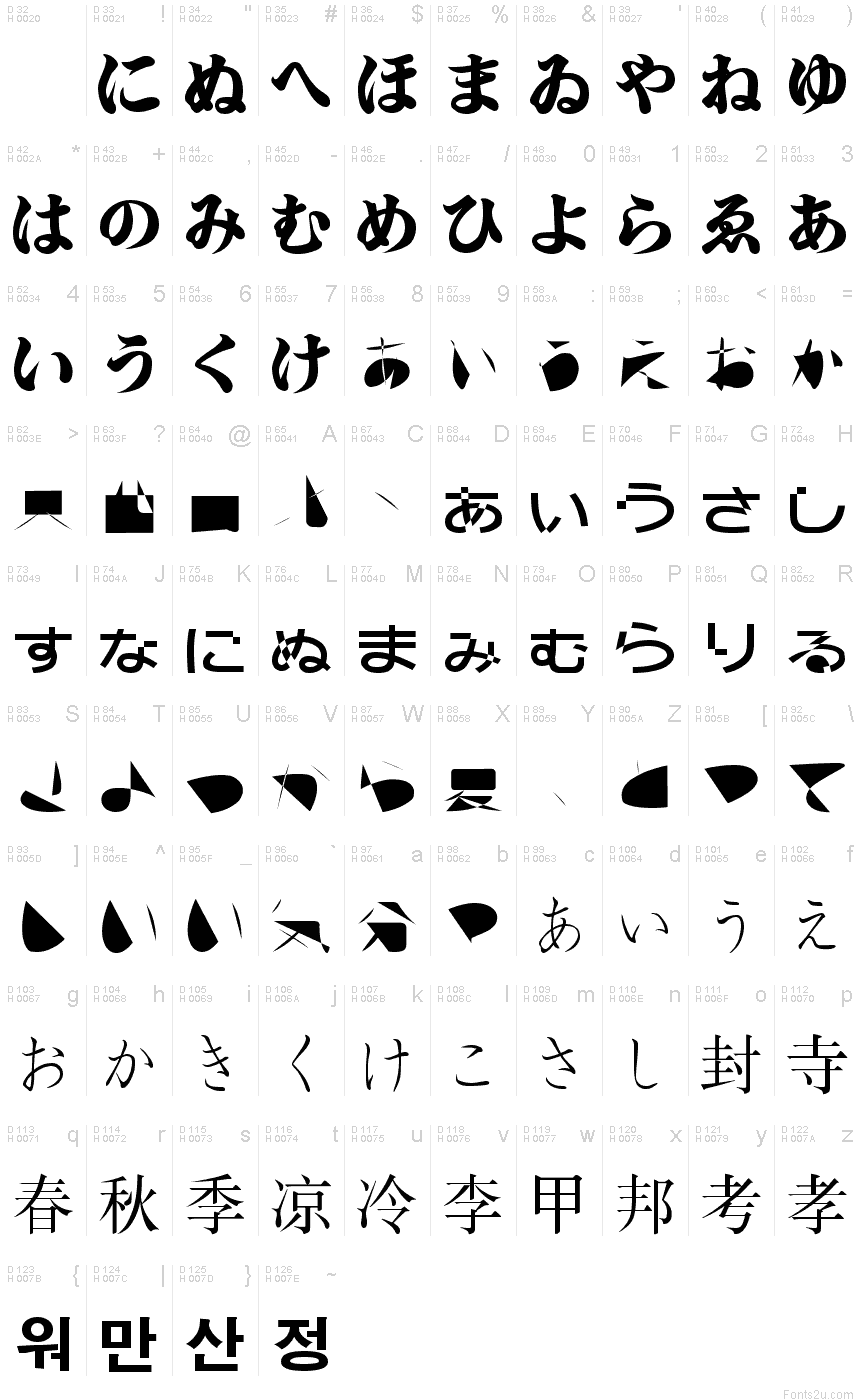 D 32 D 33 ! D 34 " D 35 # D 36 $ D 37 % D 38 & D 39 ' D 40 ( D 41 )
H 0020 H 0021 H 0022 H 0023 H 0024 H 0025 H 0026 H 0027 H 0028 H 0029
に ぬ へ ほ ま ゐ や ね ゆ
D 42 * D 43 + D 44 , D 45 - D 46 . D 47 / D 48 0 D 49 1 D 50 2 D 51 3
H 002A H 002B H 002C H 002D H 002E H 002F H 0030 H 0031 H 0032 H 0033
は の み む め ひ よ ら ゑ あ
D 52 4 D 53 5 D 54 6 D 55 7 D 56 8 D 57 9 D 58 : D 59 ; D 60 < D 61 =
H 0034 H 0035 H 0036 H 0037 H 0038 H 0039 H 003A H 003B H 003C H 003D
い う く け あ い う え お か
D 62 > D 63 ? D 64 @ D 65 A D 67 C D 68 D D 69 E D 70 F D 71 G D 72 H
H 003E H 003F H 0040 H 0041 H 0043 H 0044 H 0045 H 0046 H 0047 H 0048
あ い う さ し
D 73 I D 74 J D 75 K D 76 L D 77 M D 78 N D 79 O D 80 P D 81 Q D 82 R
H 0049 H 004A H 004B H 004C H 004D H 004E H 004F H 0050 H 0051 H 0052
す な に ぬ ま み む ら り る
D 83 S D 84 T D 85 U D 86 V D 87 W D 88 X D 89 Y D 90 Z D 91 [ D 92 \
H 0053 H 0054 H 0055 H 0056 H 0057 H 0058 H 0059 H 005A H 005B H 005C
D 93 ] D 94 ^ D 95 _ D 96 ` D 97 a D 98 b D 99 c D 100 d D 101 e D 102 f
H 005D H 005E H 005F H 0060 H 0061 H 0062 H 0063 H 0064 H 0065 H 0066
あ い う え
D 103 g D 104 h D 105 i D 106 j D 107 k D 108 l D 109 m D 110 n D 111 o D 112 p
H 0067 H 0068 H 0069 H 006A H 006B H 006C H 006D H 006E H 006F H 0070
お か き く け こ さ し 封 寺
D 113 q D 114 r D 115 s D 116 t D 117 u D 118 v D 119 w D 120 x D 121 y D 122 z
H 0071 H 0072 H 0073 H 0074 H 0075 H 0076 H 0077 H 0078 H 0079 H 007A
春 秋 季 凉 冷 李 甲 邦 考 孝
D 123 { D 124 | D 125 } D 126 ~
H 007B H 007C H 007D H 007E
워 만 산 정
Fonts2u.com